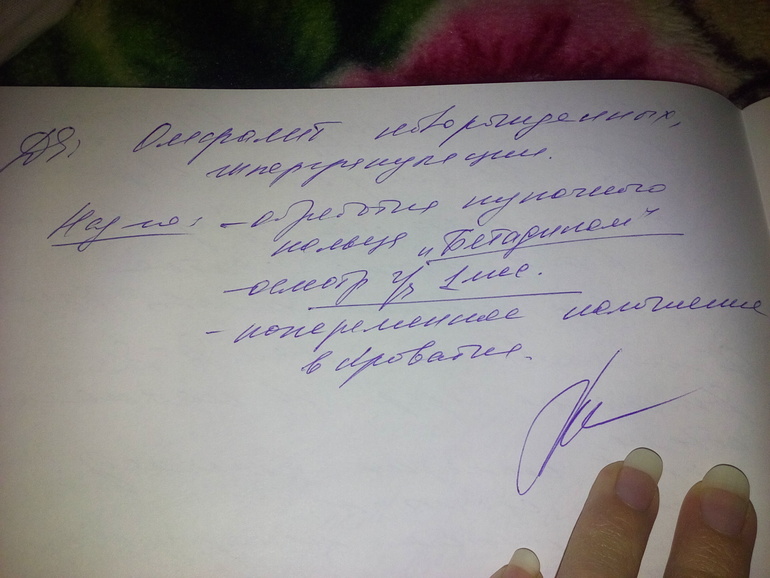 Ds: Омфалит новорожденных,
гипергрануляции.
Назнач: - обработка пупочного
кольца "Бетадином"
- осмотр ч/з 1 мес.
- попеременное положение
в кроватке.